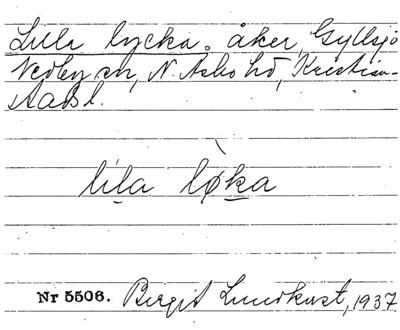 Lilla lycka. åker, Gyllsjö
Vedby sn, N. Åsbo hd, Kristian-
stads l.
lila lø̀ka
Nr 5506. Birgit Lundkvist, 1937